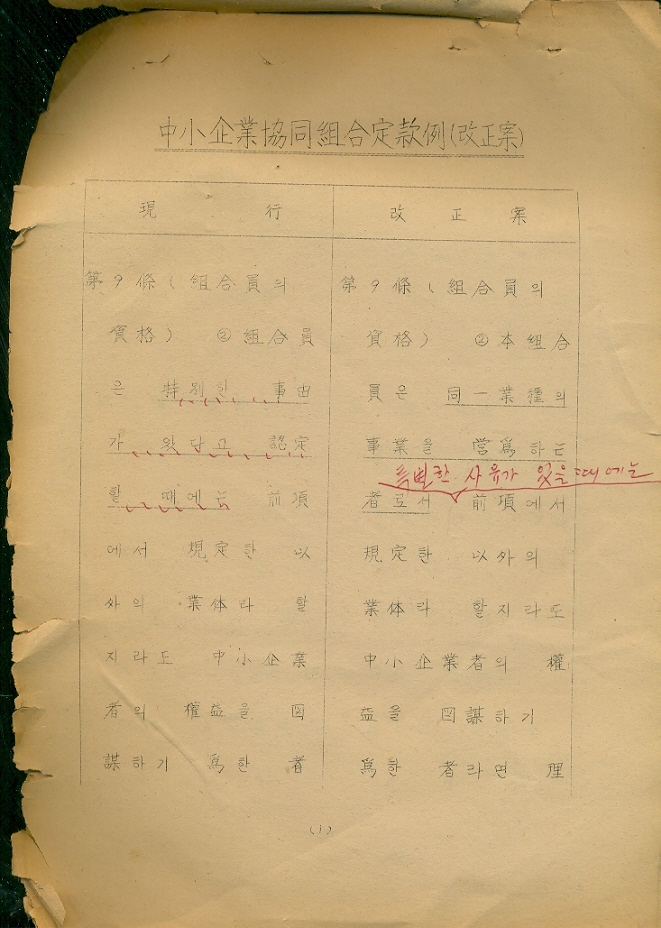 中小企業協同組合定款例(改正案)
現 行
第9條(組合員의
資格) ②組合員
은 特別한 事由
가 있답고 認定
할 때에는 前項
에서 規定한 以
外의 業体라 할
지라도 中小企業
者의 權益을 図
謀하기 爲한 者
改 正 案
第9條(組合員의
資格) ②本組合
員은 同一業種의
事業을 営爲하는
특별한 사유가 있을 때에는
者로서 前項에서
規定한 以外의
業体라 할지라도
中小企業者의 權
益을 図謀하기
爲한 者라면 理
(1)